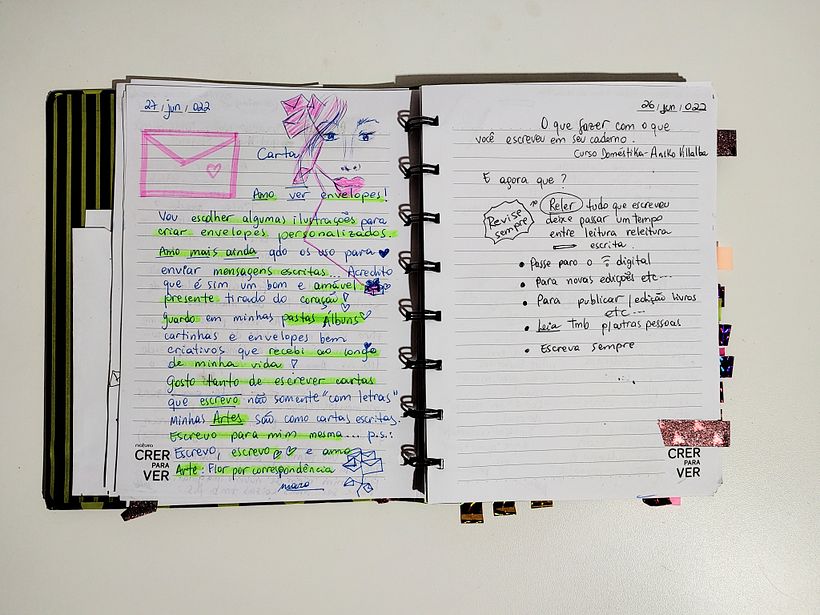 27 / jun / 022
Carta
Amo ver envelopes!
Vou escolher algumas ilustrações para
criar envelopes personalizados.
Amo mais ainda qdo os uso para
enviar mensagens escritas... Acredito
que é sim um bom e amável
presente tirado do coração!
guardo em minhas pastas Álbuns
cartinhas e envelopes bem
criativos que recebi ao longo
de minha vida!
Gosto tanto de escrever cartas
que escrevo não somente "com letras"
Minhas Artes são como cartas escritas.
Escrevo para mim mesma... p.s.:
Escrevo, escrevo e amo
Arte: Flor por correspondência
natura
CRER
PARA
VER
26 / jun / 022
O que fazer com o que
você escreveu em seu caderno.
Curso Doméstika - Aniko Villalba
E agora que?
Revise
sempre
Reler tudo que escreveu
deixe passar um tempo
entre leitura releitura
escrita.
• Passe para o digital
• Para novas edições etc...
• Para publicar / edição livros
etc...
• Leia Tmb p/ outras pessoas
• Escreva sempre
CRER
PARA
VER